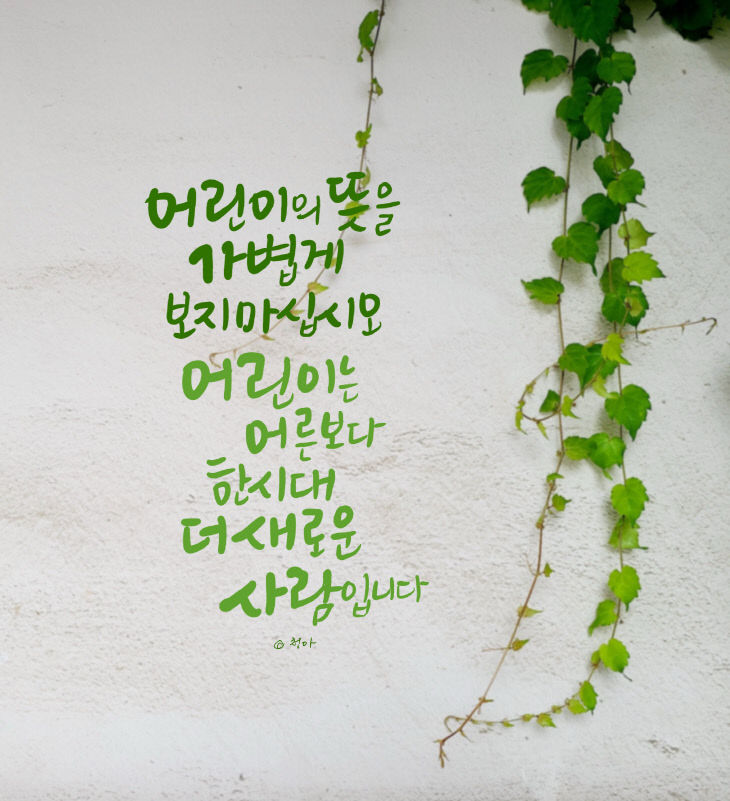 어린이의 뜻을
가볍게
보지마십시오
어린이는
어른보다
한시대
더새로운
사람입니다
@ 청아